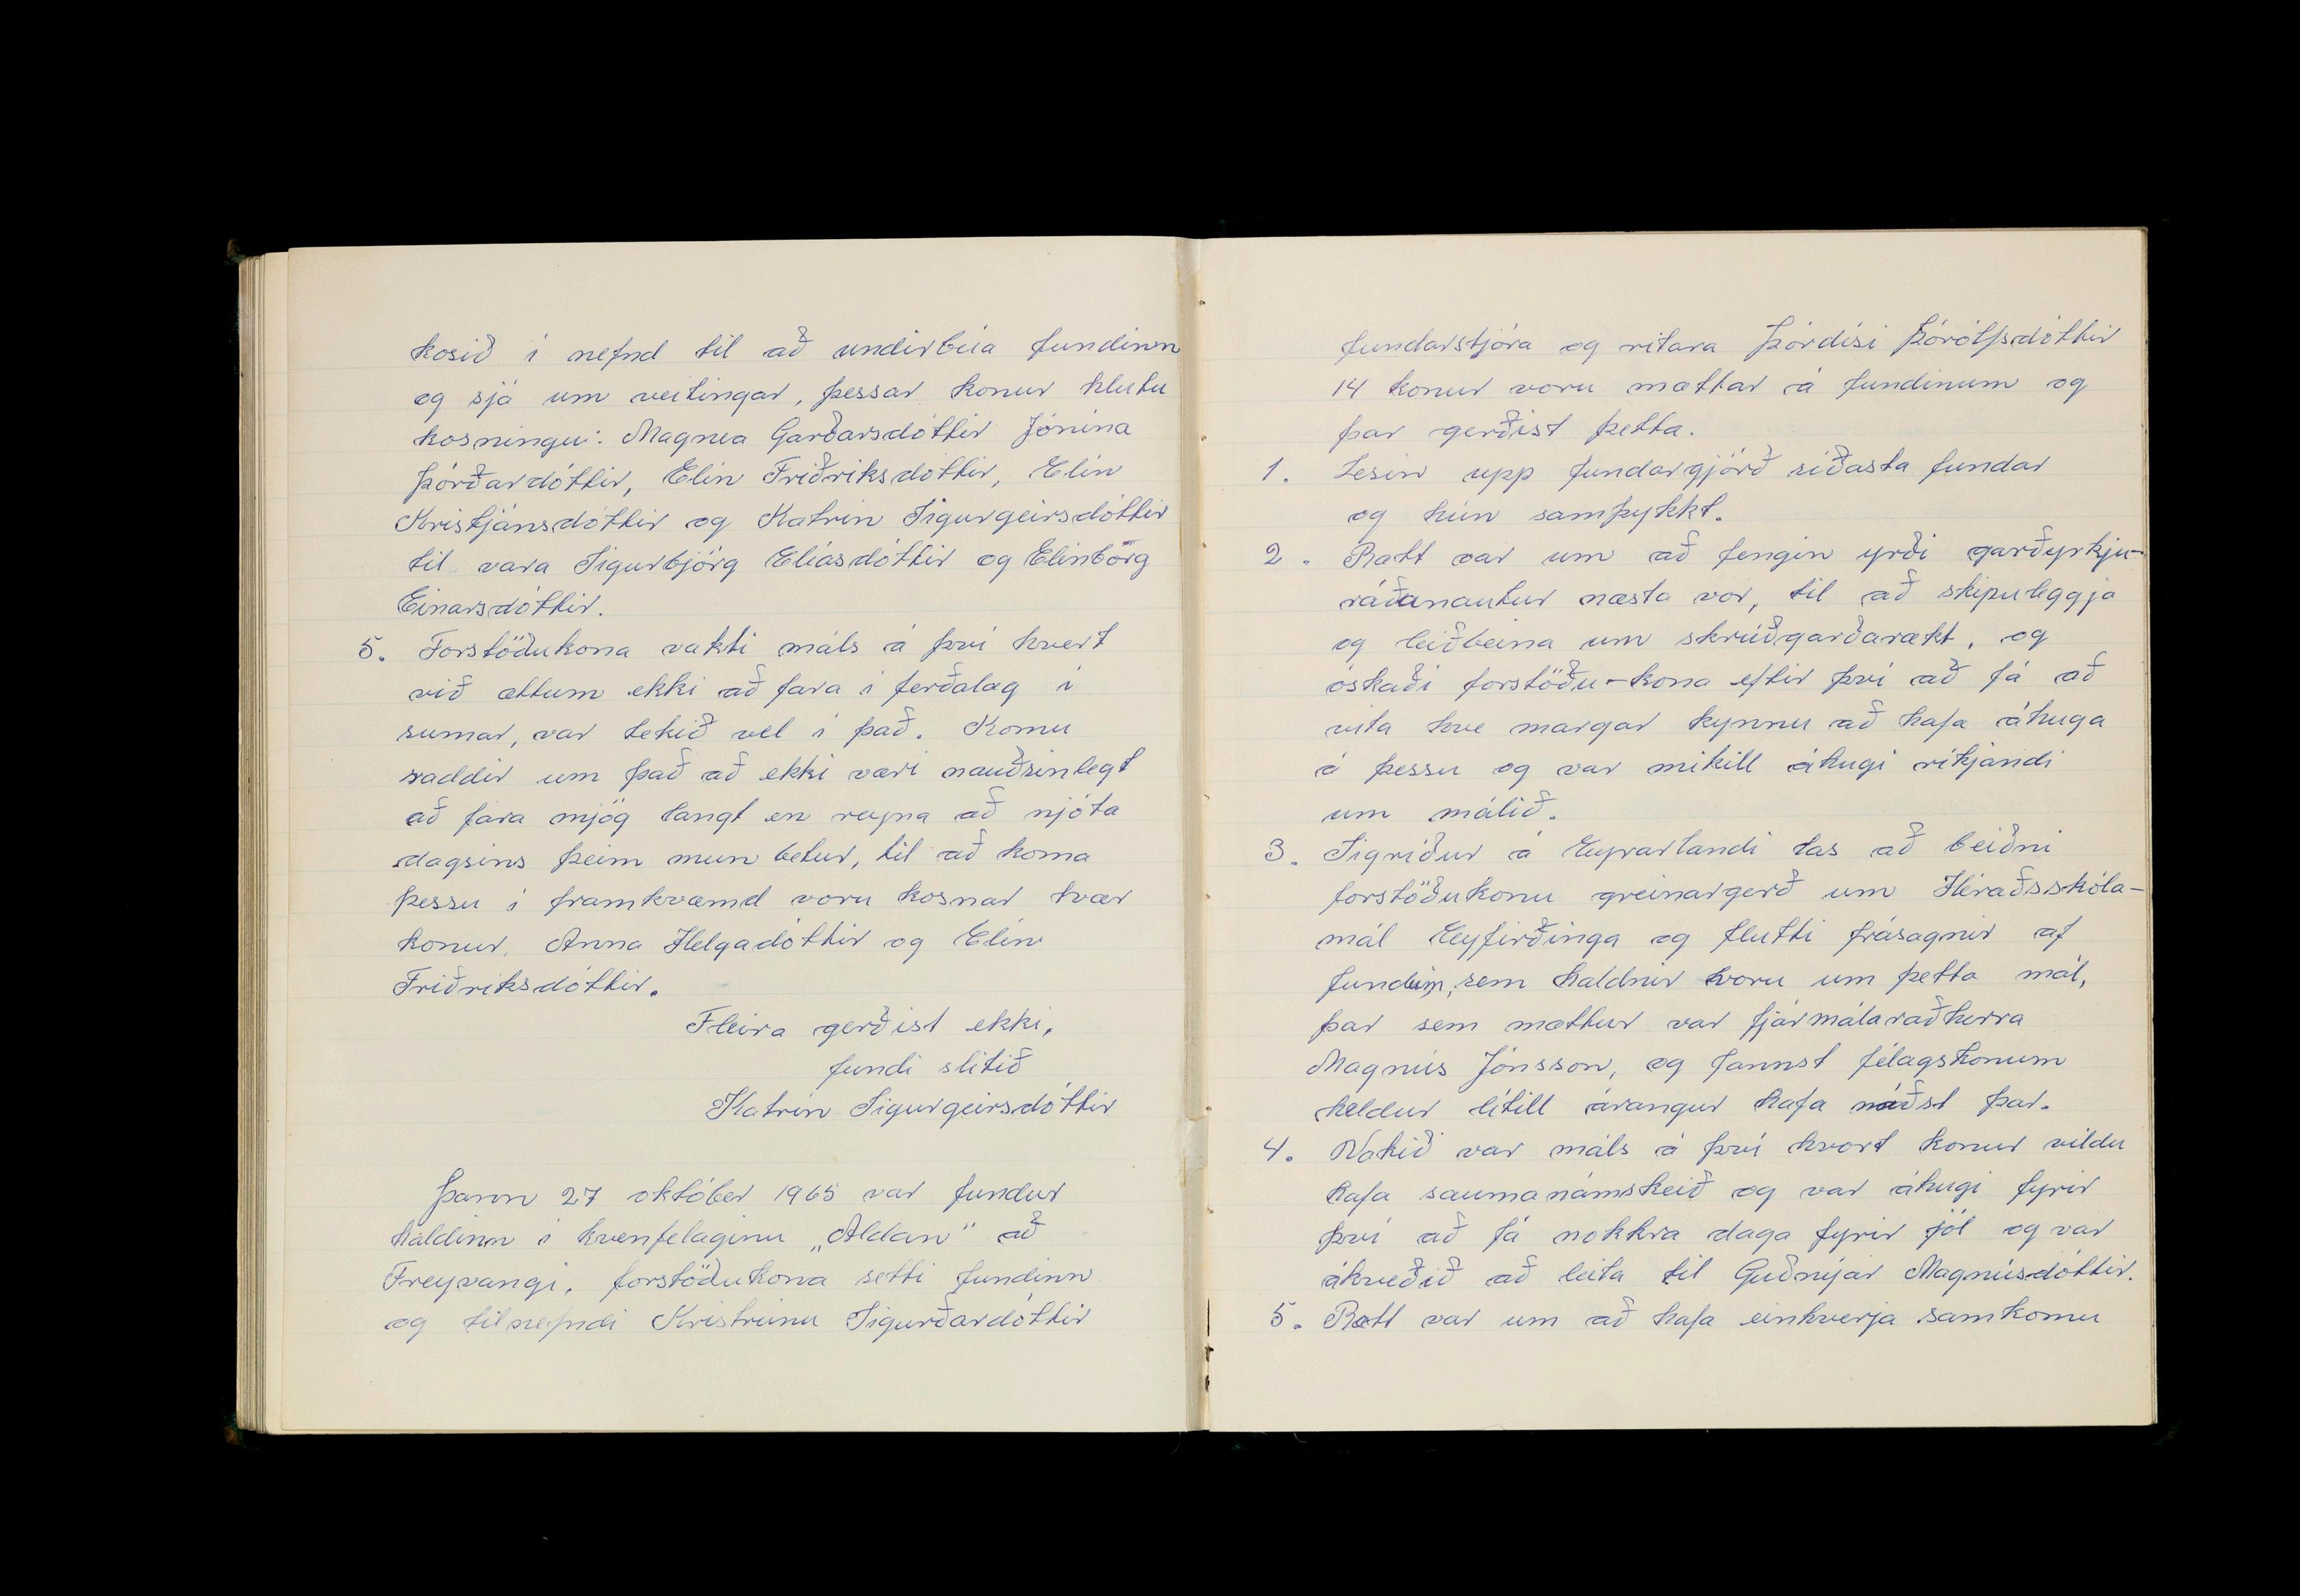 kosið í nefnd til að undirbúa fundinn
og sjá um veitingar, þessar konur hlutu
kosningu: Magnea Garðarsdóttir Jónína
Þórðardóttir, Elín Friðriksdóttir, Elín
Kristjánsdóttir og Katrín Sigurgeirsdóttir
til vara Sigurbjörg Elíasdóttir og Elinbörg
Einarsdóttir.
5. Forstöðukona vakti máls á því hvert
við ættum ekki að fara í ferðalag í
sumar, var tekið vel í það. Komu
raddir um það að ekki væri nauðsinlegt
að fara mjög langt en reyna að njóta
dagsins þeim mun betur, til að koma
þessu í framkvæmd voru kosnar tvær
konur. Anna Helgadóttir og Elín
Friðriksdóttir.
Fleira gerðist ekki,
fundi slitið
Katrín Sigurgeirsdóttir
Þann 27 október 1965 var fundur
haldinn í kvenfelaginu „Aldan" að
Freyvangi. forstöðukona setti fundinn
og tilnefndi Kristrúnu Sigurðardóttir
fundarstjóra og ritara Þórdísi Þórólfsdóttir
14 konur voru mættar á fundinum og
þar gerðist þetta.
1. Lesin upp fundargjörð síðasta fundar
og hún samþykkt.
2. Rætt var um að fengin yrði garðyrkju-
ráðanautur næsta vor, til að skipuleggja
og leiðbeina um skrúðgarðarækt, og
óskaði forstöðu-kona eftir því að fá að
vita hve margar kynnu að hafa áhuga
á þessu og var mikill áhugi ríkjandi
um málið.
3. Sigríður á Eyvarlandi las að beiðni
forstöðukonu greinargerð um Héraðsskóla-
mál Eyfirðinga og flutti frásagnir af
fundum, sem haldnir voru um þetta mál,
þar sem mættur var fjármálaraðherra
Magnús Jónsson, og fannst félagskonum
heldur lítill árangur hafa náðst þar.
4. Vakið var máls á því hvort konur vildu
hafa saumanámskeið og var áhugi fyrir
því að fá nokkra daga fyrir jól og var
ákveðið að leita til Guðnýjar Magnúsdóttir.
5. Rætt var um að hafa einhverja samkomu